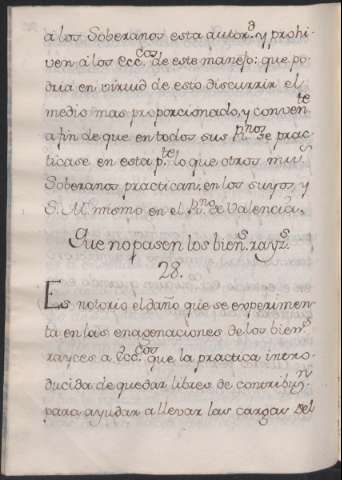 á los Soberanos esta autor.d y prohi-
ven á los Ecc.cos de este manejo: que po-
dria en virtud de esto discurrir el
medio mas proporcionado, y conven.te
a fin de que en todos sus R.nos se prac-
ticase en esta p.te lo que otros muc.s
Soberanos practican en los suyos, y
S. M. mismo en el R.no de Valencia.
Que no pasen los bien.s rayz.s
28.
Es notorio el daño que se experimen-
ta en las enagenaciones de los bien.s
rayces a Ecc.cos que la practica intro-
ducida de quedar libres de contribuz.n
para ayudar a llevar las cargas del